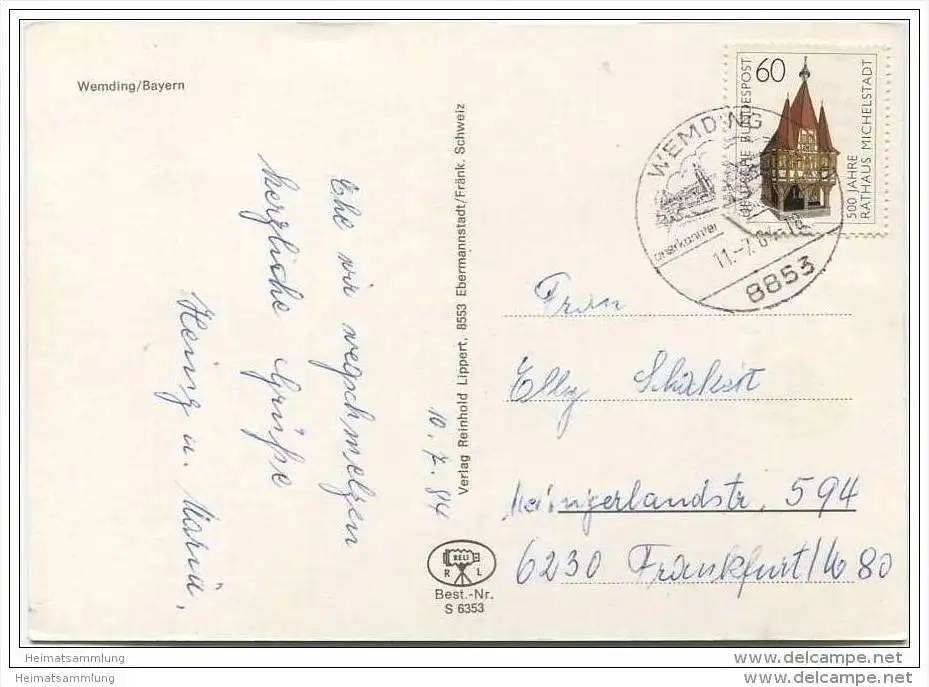 Wemding/Bayern
Ehe wir wegschmelzen
herzliche Grüße
Heinz u. Maria,
10.7.84
Verlag Reinhold Lippert, 8553 Ebermannstadt/Fränk. Schweiz
RELI
R L
Best.-Nr.
S 6353
60
DEUTSCHE BUNDESPOST
500 JAHRE
RATHAUS MICHELSTADT
WEMDING
anerkannter
11.-7.84
8853
Frau
Elly
Mainzerlandstr. 594
6230 Frankfurt/M 80
Heimatsammlung
www.delcampe.net
Heimatsammlung
www.delcampe.net